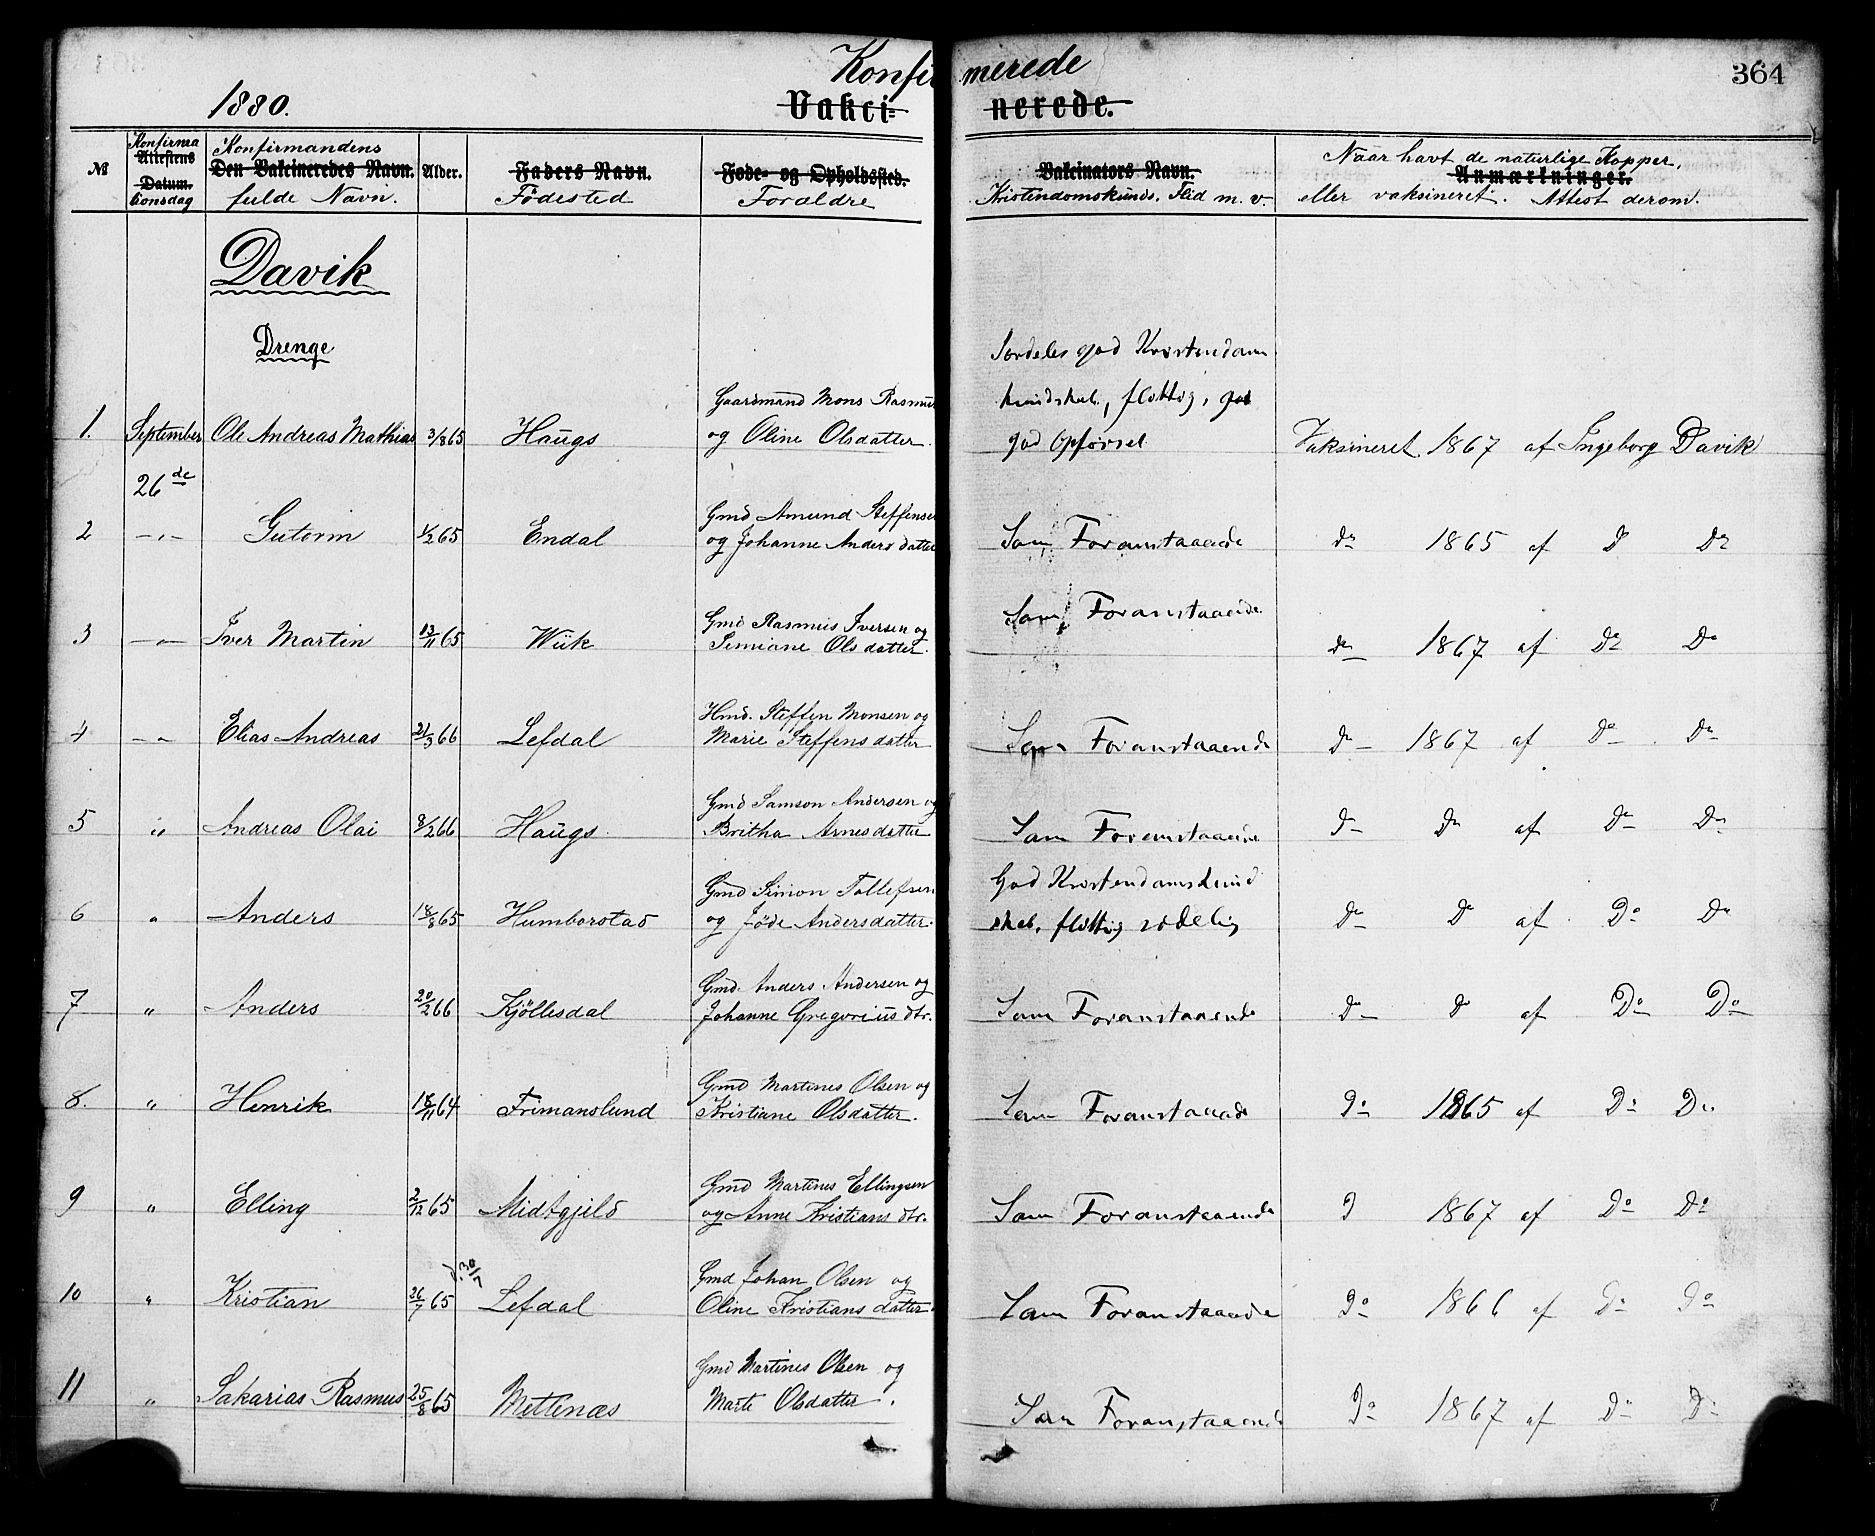 Konfirmerede
364
1880.
Vakcinerede.
№
Konfirma
Attestens
Datum.
tionsdag
Konfirmandens
Den Vakcineredes Navn.
fulde Navn.
Alder.
Faders Navn.
Födested
Føde- og Opholdssted.
Forældre
Vakcinators Navn.
Kristendomskunds. Flid m. v.
Naar havt de naturlige Kopper,
Anmærkninger.
eller vaksineret. Attest derom.
Davik
Drenge
1. September 26de Ole Andreas Mathias 3/8 65 Haugs
Gaardmand Mons Rasmus
og Oline Olsdatter.
Særdeles god Kristendom
kundskab, flittig, god
god Opførsel
Vaksineret 1867 af Ingeborg Davik
2 -„- Gutorm 1/2 65 Endal
Gmd Amund Steffensen
og Johanne Andersdatter
Som Foranstaaende
do 1865 af D do
3 -„- Iver Martin 13/11 65 Wiik
Gmd Rasmus Iversen og
Simiane Olsdatter.
Som Foranstaaende
do 1867 af Do Do
4 -„- Elias Andreas 21/3 66 Lefdal
Hmd. Steffen Monsen og
Marie Steffensdatter
Som Foranstaaende
do 1867 af Do Do
5 „ Andreas Olai 8/2 66 Haugs
Gmd Samson Andersen og
Britha Arnesdatter
Som Foranstaaende
Do Do af Do Do
6 „ Anders 18/8 65 Humborstad
Gmd Simon Tollefsen
og Jøde Andersdatter.
God Kristendomskund
skab, flittig sædelig
Do Do af Do Do
7 „ Anders 20/2 66 Kjöllesdal
Gmd. Anders Andersen og
Johanne Gregoriusdtr.
Som Foranstaaende
Do D af Do Do
8. „ Henrik 18/11 64 Frimanslund
Gmd Martines Olsen og
Kristiane Olsdatter.
Som Foranstaaende
Do 1865 af Do Do
9 „ Elling 2/12 65 Midtgjeld
Gmd Martines Ellingsen
og Anne Kristiansdtr.
Som Foranstaaende
D 1867 af Do Do
10 „ Kristian 26/7 65 30/7 Lefdal
Gmd Johan Olsen og
Oline Kristiansdatter
Som Foranstaaende
Do 1866 af Do Do
11 „ Sakarias Rasmus 25/8 65 Mettenæs
Gmd Martines Olsen og
Marte Olsdatter.
Som Foranstaaende
Do 1867 af Do D